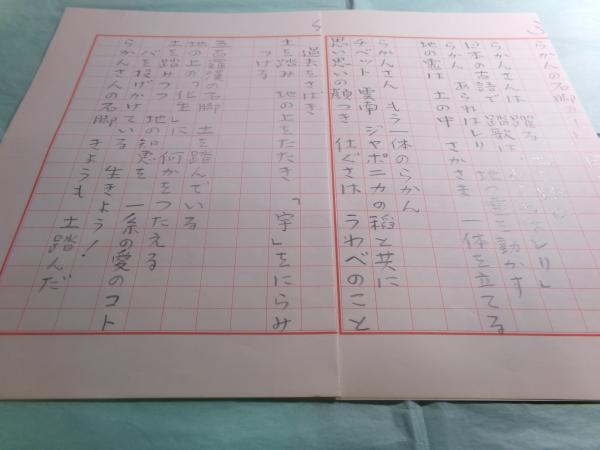 らかんの石脚
らかんさんは 踊る
日本の古語で 踏歌は 地の霊を動かす
らかん あられはしり 一体を立てる
地の霊は 土の中 さかさま
らかんさん もう一体のらかん
チベット 雲南 ジャポニカの稲と共に
思い思いの顔つき 仕ぐさは うわべのこと
4
過去をさばき
土を踏み 地の上をたたき 「宇」をにらみ
つける
五百羅漢の石脚 土を踏んでいる
地の上の「化生」に 何かをつたえる
土を踏みつつ 地の知恵を 一糸の愛のコト
バを投げかけている 生きよう!
らかんさんの石脚 きょうも 土踏んだ